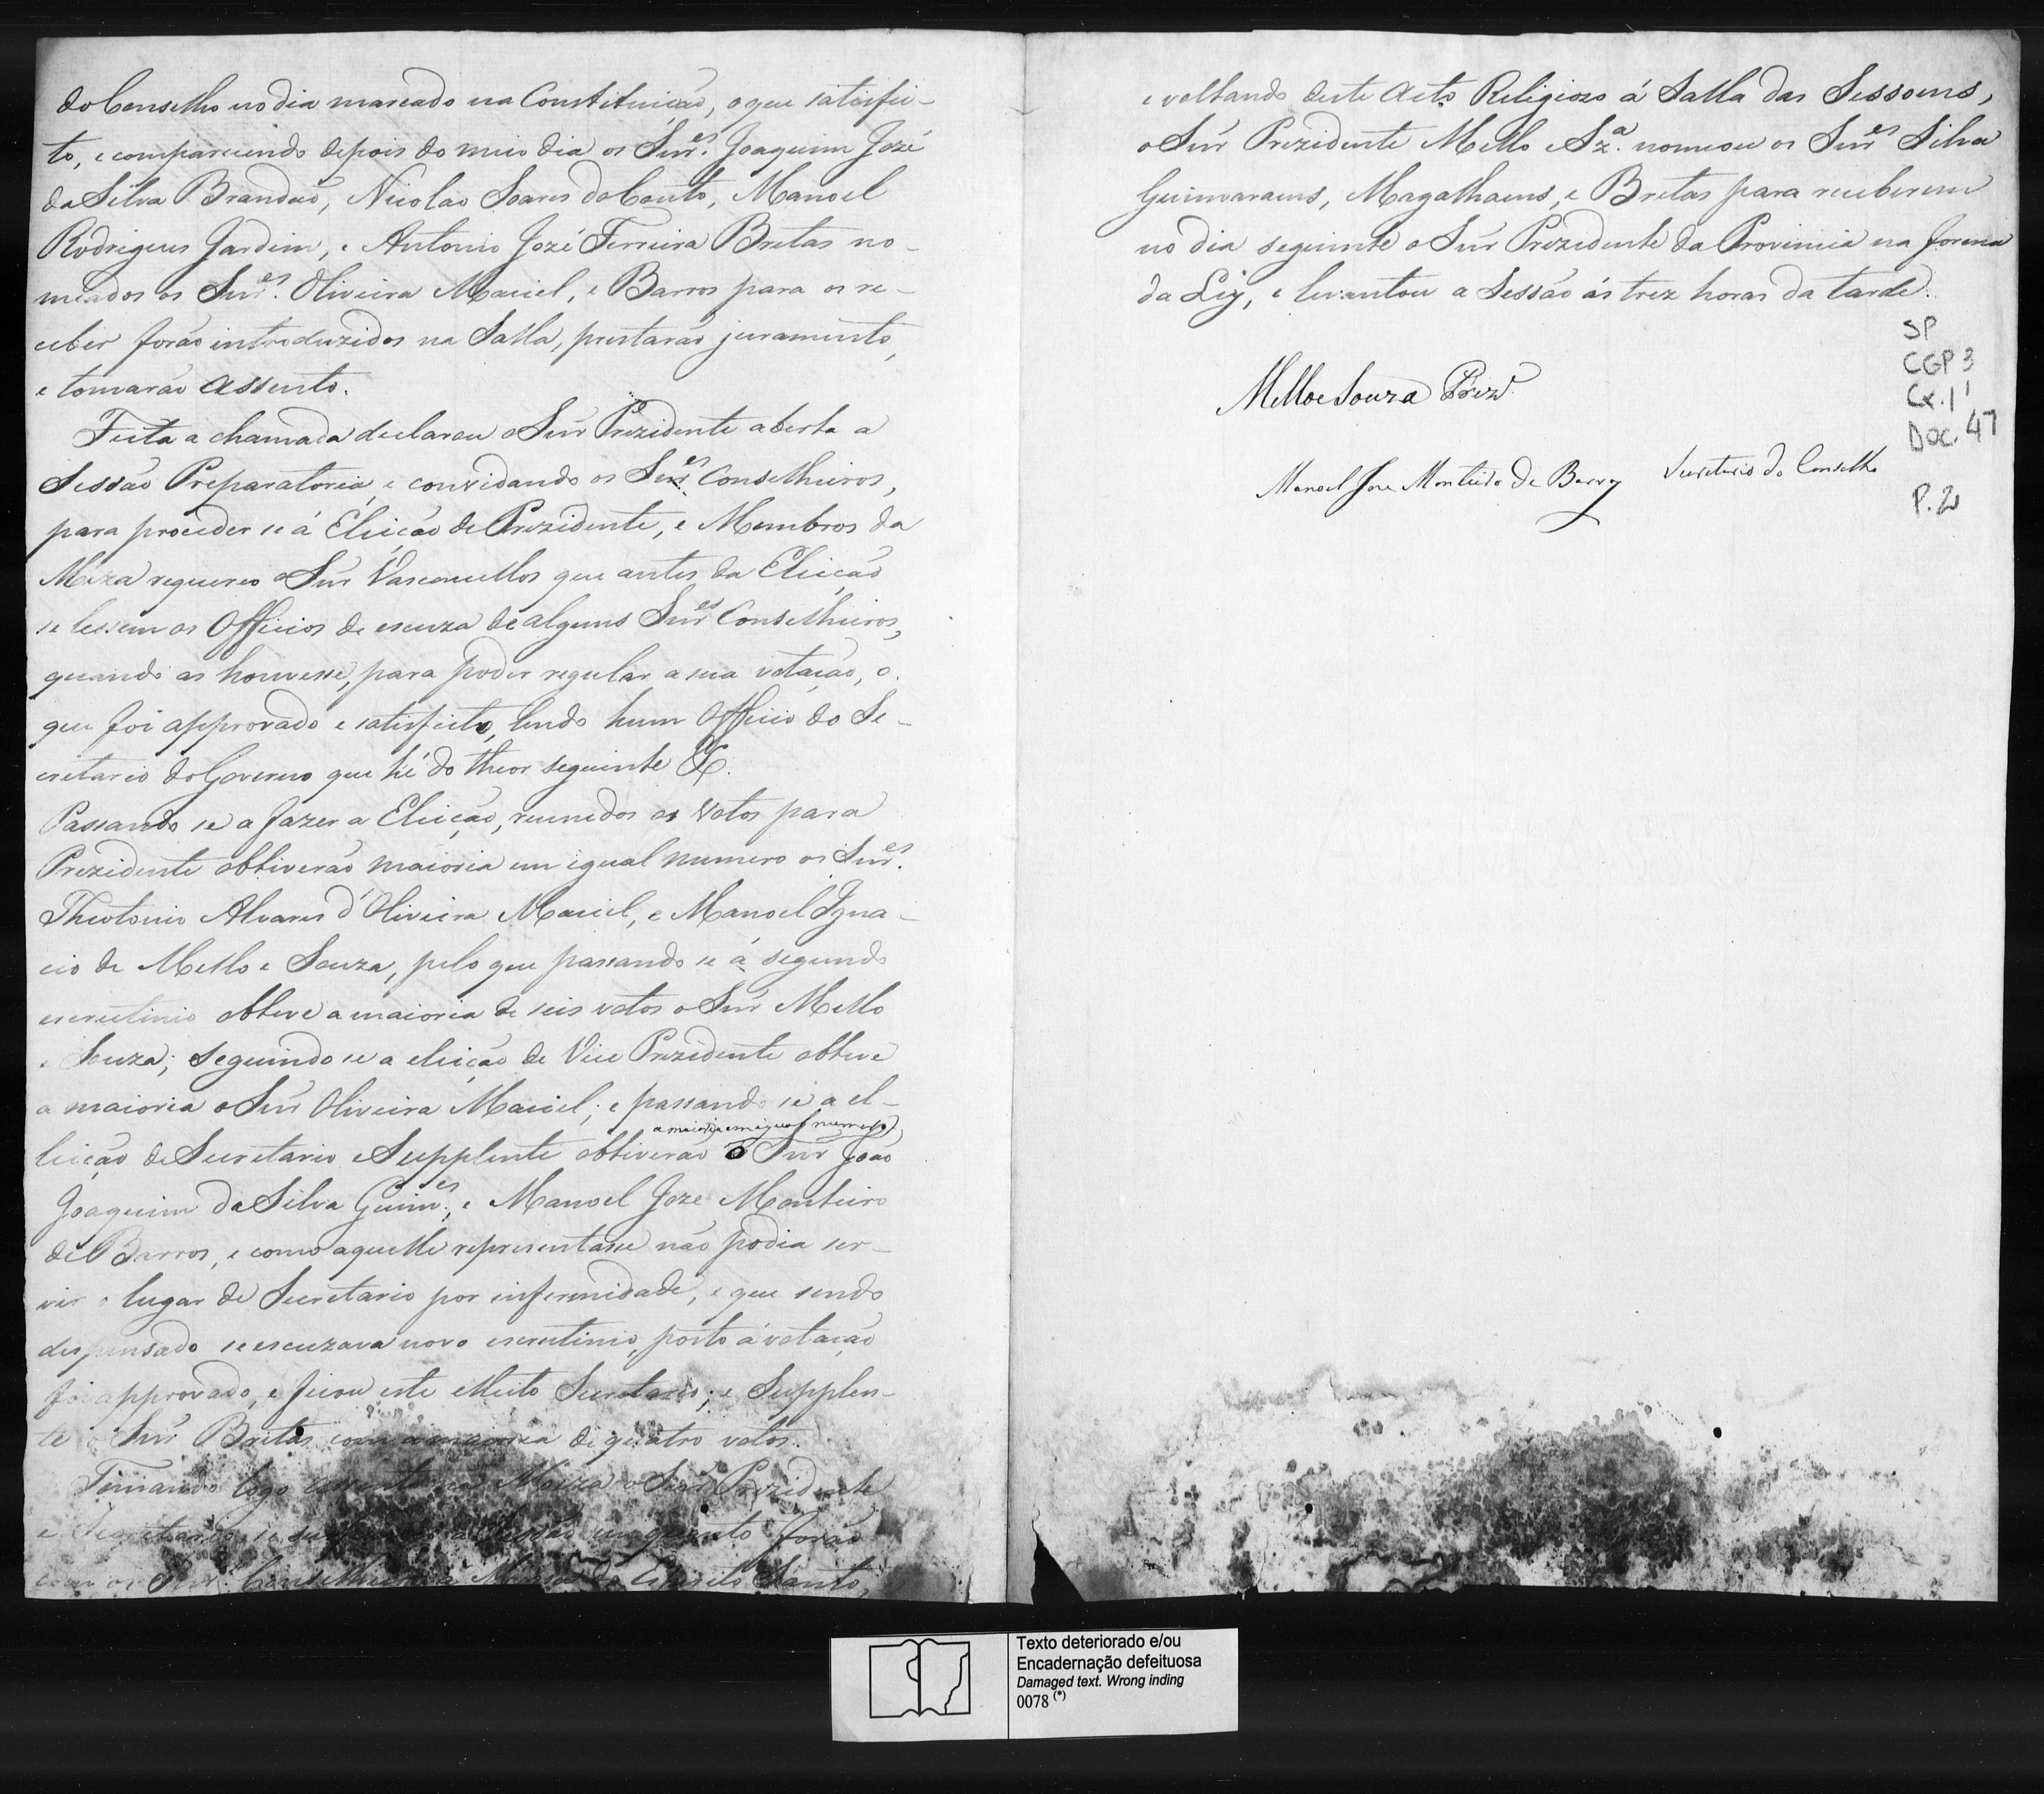 do Conselho no dia marcado na Constituição, o que satisfei-
to, e comparecendo depois do meio dia os Snr.es Joaquim Jozé
da Silva Brandão, Nicolao Soares do Couto, Manoel
Rodrigues Jardim, e Antonio Jozé Ferreira Bretas no-
meados os Snr.es Oliveira Maciel, e Barros para os re-
ceber forão introduzidos na Salla, prestarão juramento,
e tomarão assento.
Feita a chamada declarou o Snr Prezidente aberta a
Sessão Preparatoria, e convidando os Snr.es Conselheiros,
para proceder se á Eleição de Prezidente, e Membros da
Meza requereo o Snr Vasconcellos que antes da Eleição
se lessem os Officios de escuza de alguns Snr.es Conselheiros,
quando as houvesse, para poder regular a sua votação, o
que foi approvado e satisfeito, lendo hum Officio do Se-
cretario do Governo que hé do theor seguinte &.
Passando se a fazer a Eleição, reunidos os Votos para
Prezidente obtiverão maioria em igual numero os Snr.es
Theotonio Alvares d'Oliveira Maciel, e Manoel Igna-
cio de Mello e Souza, pelo que passando se á segundo
escrutinio obteve a maioria de seis votos o Snr Mello
e Souza; seguindo se a eleição de Vice Prezidente obteve
a maioria o Snr Oliveira Maciel; e passando se a el-
a maioria em igual numero
leição de Secretario e Supplente obtiverão o Snr João
Joaquim da Silva Guim.es, e Manoel Joze Monteiro
de Barros, e como aquelle representasse não podia ser-
vir o lugar de Secretario por infermidade, e que sendo
dispensado se escuzava novo escrutinio, posto á votação
foi approvado, e ficou este elleito Secretario; e Supplen-
te o Snr Bretas com a maioria de quatro votos.
Tomando logo assento na Meza o Snr Prezidente
e Secretario se a Sessão em quanto forão
com os Snr.es Conselheiros a Missa do Espirito Santo,
e voltando deste Acto Religiozo á Salla das Sessoens,
o Snr Prezidente Mello e Sz.a nomeou os Snr.es Silva
Guimaraens, Magalhaens, e Bretas para receberem
no dia seguinte o Snr Prezidente da Provincia na forma
da Ley, e levantou a Sessão ás trez horas da tarde.
SP
CGP 3
Cx. 1
Doc. 47
P. 2v
Mello e Souza Prezd.e
Manoel Joze Monteiro de Barros Secretario do Conselho
Texto deteriorado e/ou
Encadernação defeituosa
Damaged text. Wrong inding
0078 (*)